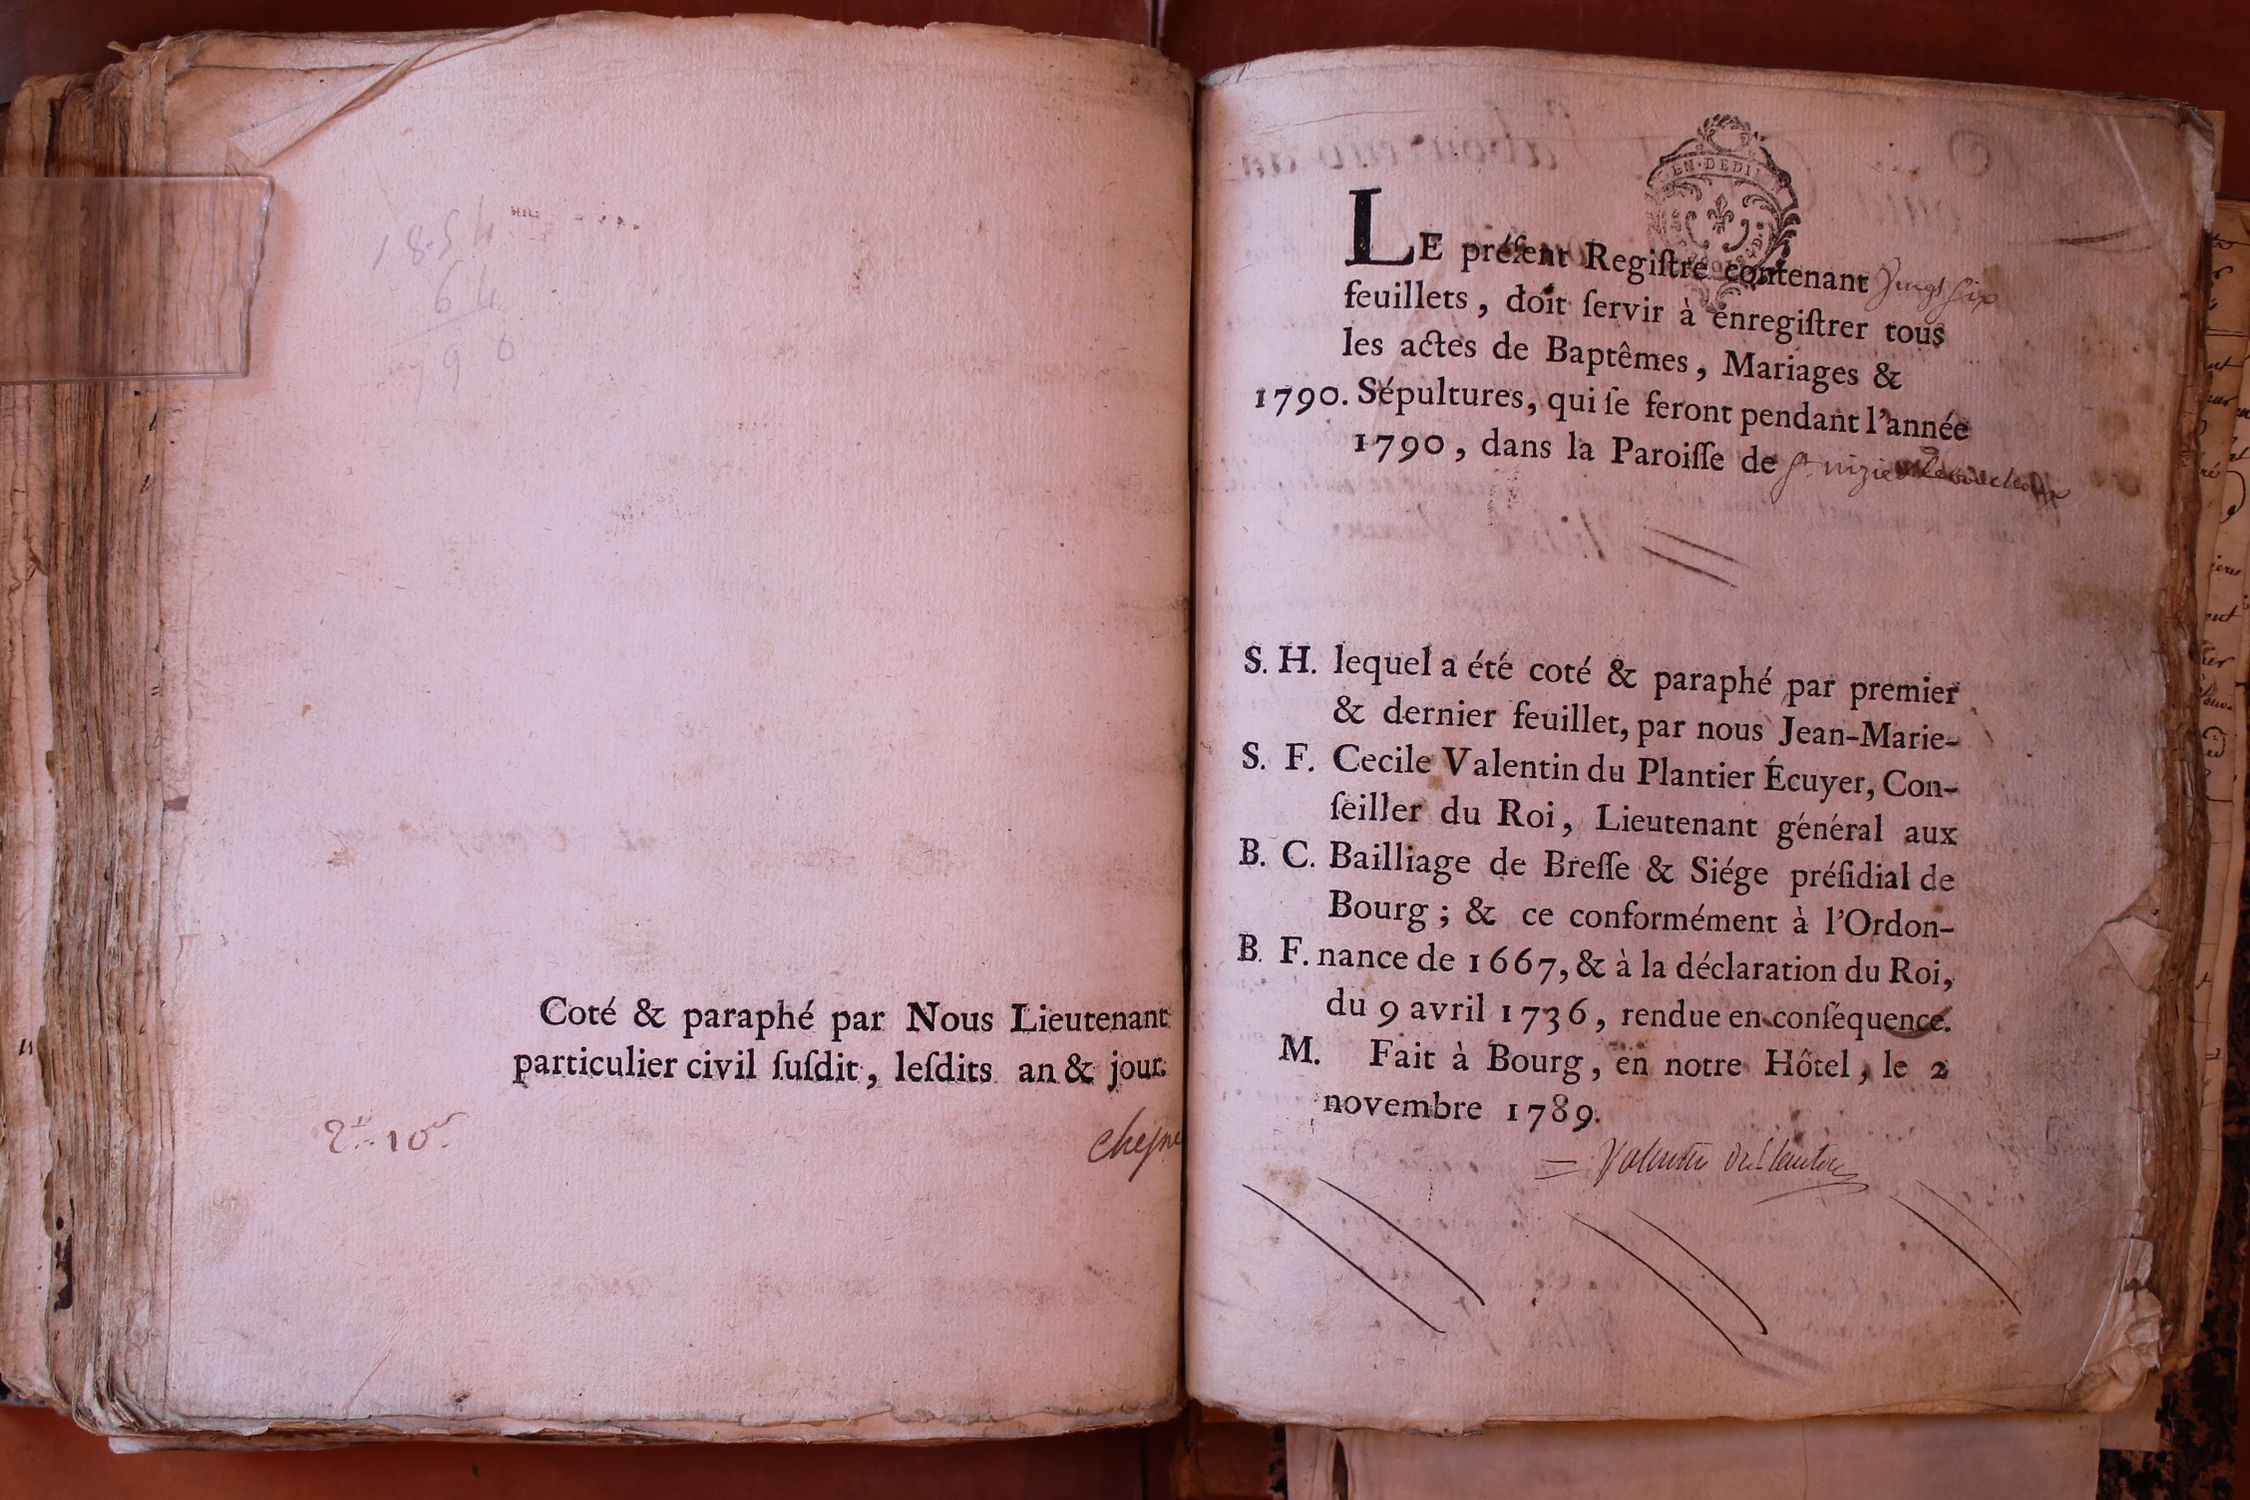 1854
64
790
Coté & paraphé par Nous Lieutenant
particulier civil ſuſdit, leſdits an & jour.
2# 10s
EN·DEDI
LE préſent Regiſtre contenant Vingt ſix
feuillets, doit ſervir à enregiſtrer tous
les actes de Baptêmes, Mariages &
1790. Sépultures, qui ſe feront pendant l'année
1790, dans la Paroiſſe de St nizier
S. H. lequel a été coté & paraphé par premier
& dernier feuillet, par nous Jean-Marie-
S. F. Cecile Valentin du Plantier Écuyer, Con-
ſeiller du Roi, Lieutenant général aux
B. C. Bailliage de Breſſe & Siége préſidial de
Bourg ; & ce conformément à l'Ordon-
B. F. nance de 1667, & à la déclaration du Roi,
du 9 avril 1736, rendue en conſéquence.
M. Fait à Bourg, en notre Hôtel, le 2
novembre 1789.
Valentin duPlantier